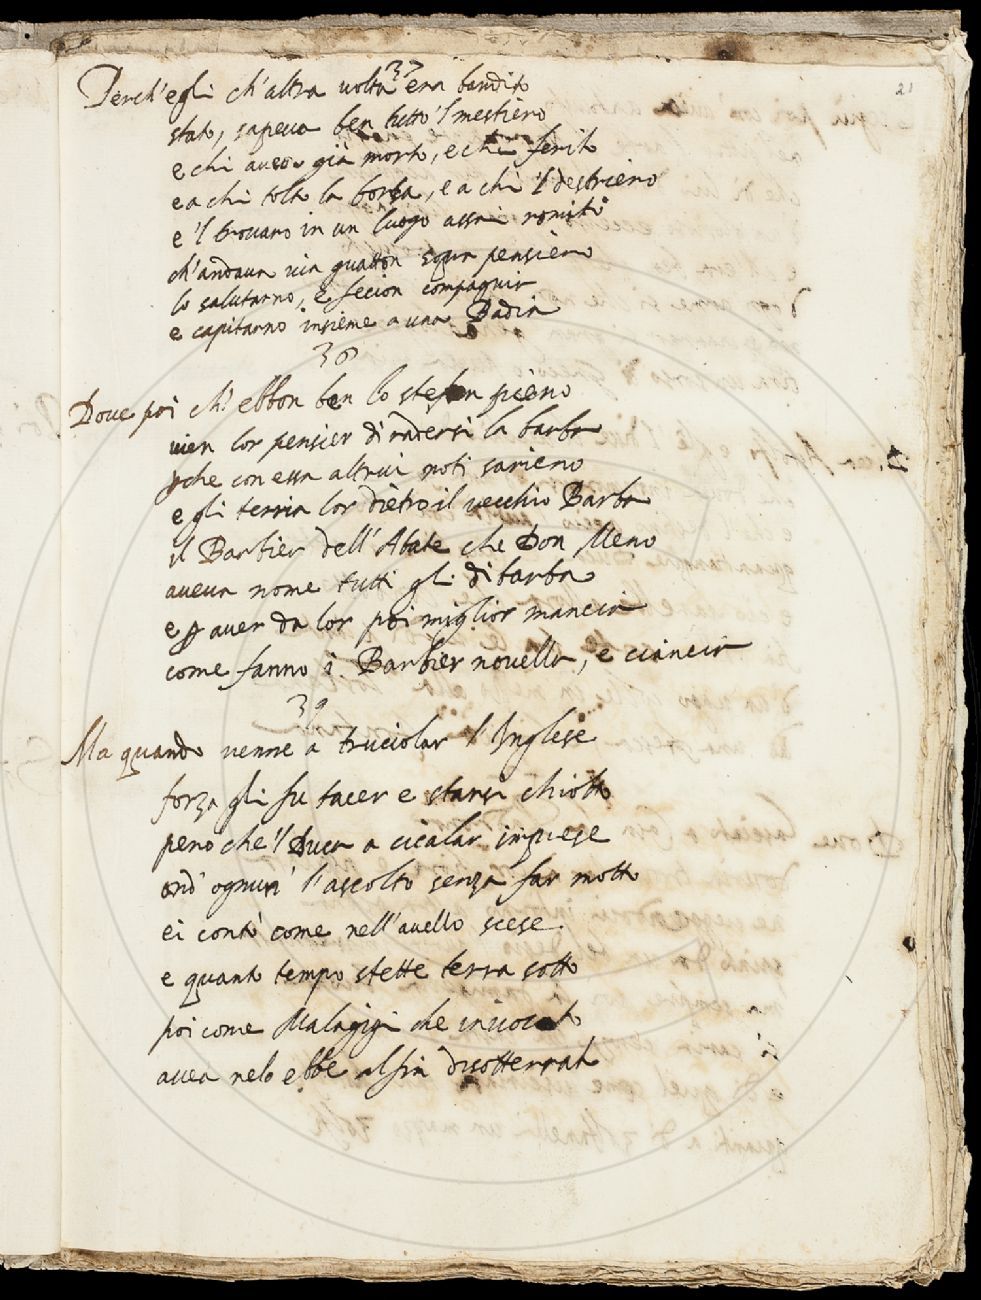 21
37
Perch'egli ch'altra volta era bandito
stato, sapeua ben tutto 'l mestiero
e chi aueua già morto, e chi ferito
e a chi tolto la borsa, e a chi 'l destriero
e 'l trouaro in un luogo assai romito
ch'andaua via guatton sopra pensiero
lo salutarno, e fecion compagnia
e capitarno insieme a una Badia
38
Doue poi ch' ebbon ben lo stefan pieno
vien lor pensier di radersi la barba
che con essa altrui noti sarieno
e gli terria lor dietro il vecchio Barba
il Barbier dell'Abate che Don Meno
aueua nome tutti gli disbarba
e p auer da lor poi miglior mancia
come fanno i Barbier nouella, e ciancia
39
Ma quando venne a truciolar l'Inglese
forza gli fu tacer e starsi chiotto
pero che 'l Duca a cicalar imprese
ond' ognun l'ascolto senza far motto
ei contò come nell'auello scese
e quanto tempo stette terra sotto
poi come Malagigi che inuocato
auea nelo ebbe alfin disotterrato